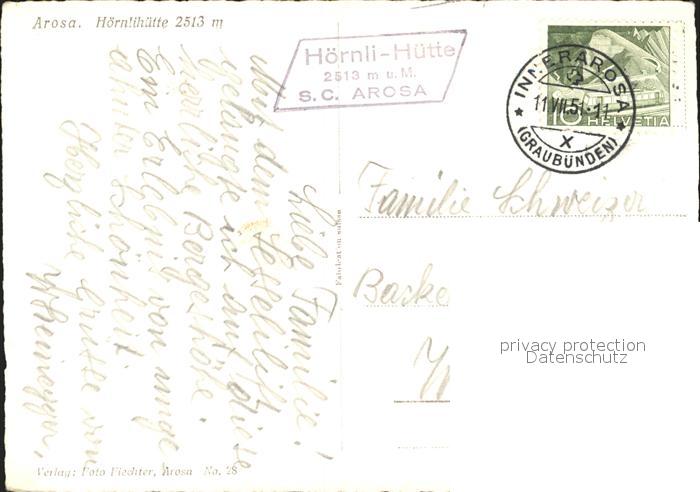 Arosa. Hörnlihütte 2513 m
Hörnli-Hütte
2513 m ü. M.
S. C. AROSA
INNERAROSA
11.VII.5
(GRAUBÜNDEN)
X
10 HELVETIA
Liebe Familie!
Mit dem Sesselilift
gelangte ich auf diese
herrliche Bergeshöhe.
Ein Erlebnis von unge
ahnter Schönheit.
Herzliche Grüsse von
Familie Schweizer
Backe
Fabrication suisse
privacy protection
Datenschutz
Verlag: Foto Fiechter, Arosa No. 28